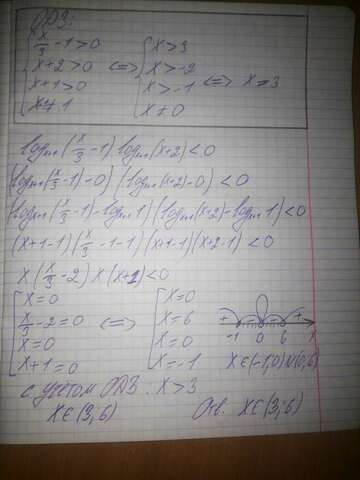 ОДЗ:
x/3 - 1 > 0
x + 2 > 0
x + 1 > 0
x + 1 ≠ 1
<=>
x > 3
x > -2
x > -1
x ≠ 0
<=> x > 3
log (x/3 - 1) log (x+2) < 0
(log (x/3 - 1) - 0) (log (x+2) - 0) < 0
(log (x/3 - 1) - log 1) (log (x+2) - log 1) < 0
(x+1-1)(x/3 - 1 - 1)(x+1-1)(x+2-1) < 0
x (x/3 - 2) x (x+1) < 0
x = 0
x/3 - 2 = 0
x = 0
x + 1 = 0
<=>
x = 0
x = 6
x = 0
x = -1
+ - - +
-1 0 6 x
x∈(-1,0)∪(0,6)
с учётом ОДЗ: x > 3
x∈(3;6) Отв: x∈(3;6)